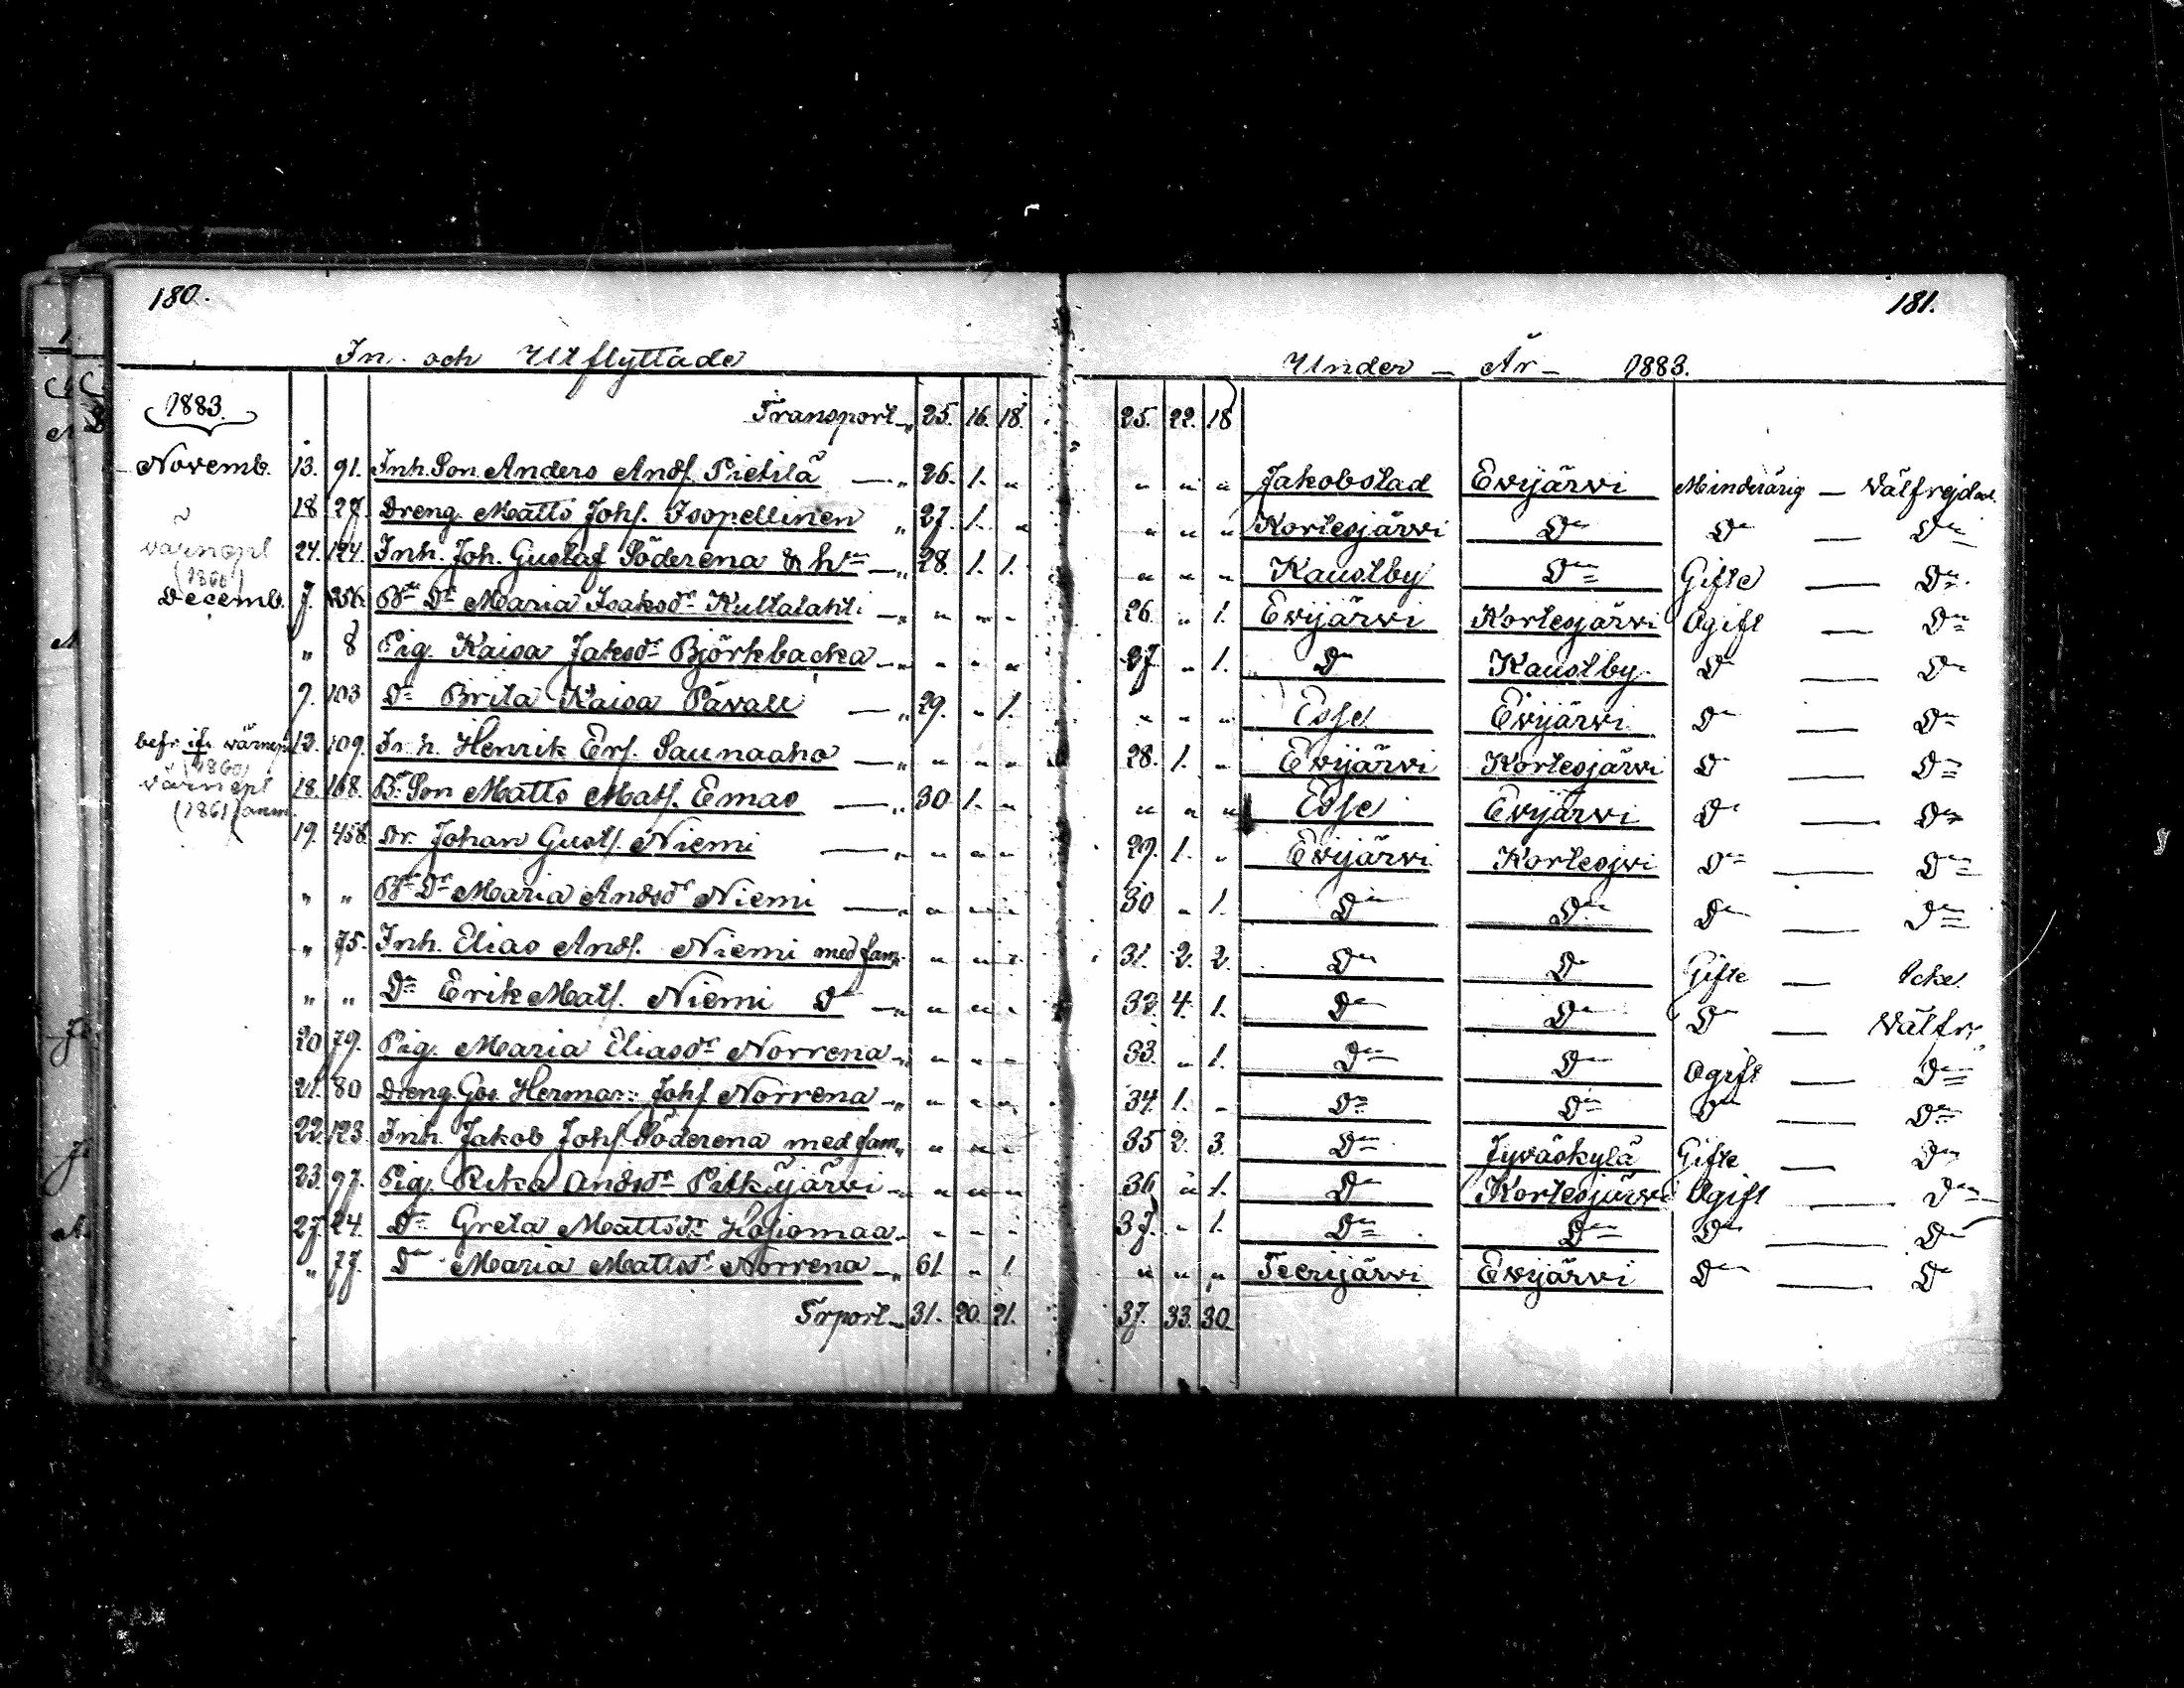 180.
181.
In- och Utflyttade
Under - År - 1883.
1883. Transport 25. 16. 18. 25. 22. 18
Novemb. 13. 91. Inh. Son Anders Andſ. Pietilä — „ 26. 1. „ „ „ „ Jakobstad Evijärvi Minderårig — Välfrejdad.
18 27. Dreng. Matts Johſ. Isopellinen „ 27. 1. „ „ „ „ Kortesjärvi Do Do — Do
värnepl (1860) 24. 124. Inh. Joh. Gustaf Söderena & hu — „ 28. 1. 1. „ „ „ Kaustby Do Gifte — Do
Decemb. 7. 256. Bde Dr Maria Isaksdr Kultalahti — „ „ „ „ 26. „ 1. Evijärvi Kortesjärvi Ogift — Do
„ 8 Pig. Kaisa Jaksdr Björkbacka — „ „ „ „ 27 „ 1. Do Kaustby Do — Do
9. 103 Do Brita Kaisa Påvall — „ 29. „ 1. „ „ „ Esse Evijärvi Do — Do
befr. ifr. värnepl (1860) 12. 109. Inh. Henrik Erſ. Saunaaho — „ „ „ „ 28. 1. „ Evijärvi Kortesjärvi Do — Do
värnepl (1861) anm. 18. 168. B. Son Matts Matſ. Emas — „ 30 1. „ „ „ „ Esse Evijärvi Do — Do
19. 458. Dr. Johan Gustſ. Niemi — „ „ „ „ 29. 1. „ Evijärvi Kortesjvi Do — Do
„ „ Bde Dr Maria Andsdr Niemi — „ „ „ „ 30 „ 1. Do Do Do — Do
„ 75. Inh. Elias Andſ. Niemi med fam. „ „ „ 31. 2. 2. Do Do Gifte — Icke
„ „ Do Erik Matſ. Niemi Do — „ „ „ „ 32. 4. 1. Do Do Do — Välfr.
20 79. Pig. Maria Eliasdr Norrena — „ „ „ „ 33. „ 1. Do Do Ogift — Do
21. 80 Dreng. Gos. Herman Johſ Norrena — „ „ „ „ 34. 1. „ Do Do Do — Do
22. 123. Inh. Jakob Johſ Söderena med fam. „ „ „ 35 2. 3. Do Jyväskylä Gifte — Do
23. 97. Pig. Rika Andsdr Pitkäjärvi — „ „ „ 36 „ 1. Do Kortesjärvi Ogift — Do
27 24. Do Greta Mattsdr Kojomaa — „ „ „ 37. „ 1. Do Do Do — Do
„ 77. Do Maria Mattsdr Norrena — „ 61. „ 1. „ „ „ Teerijärvi Evijärvi Do — Do
Trport 31. 20. 21. 37. 33. 30.